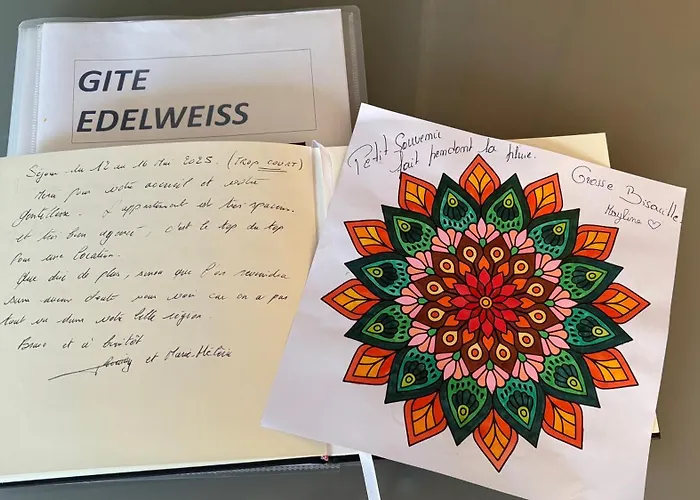 GITE
EDELWEISS
Séjour du 12 au 16 Mai 2025. (TROP COURT)
Merci pour votre accueil et votre
gentillesse. L'appartement est très spacieux
et très bien agencé, c'est le top du top
pour une location.
Que dire de plus, sinon que l'on reviendra
sans aucun doute vous voir car on a pas
tout vu dans votre belle région.
Bravo et à bientôt
et Marie-Hélène
Petit Souvenir
fait pendant la pluie.
Grosse Bisouille
Maryline